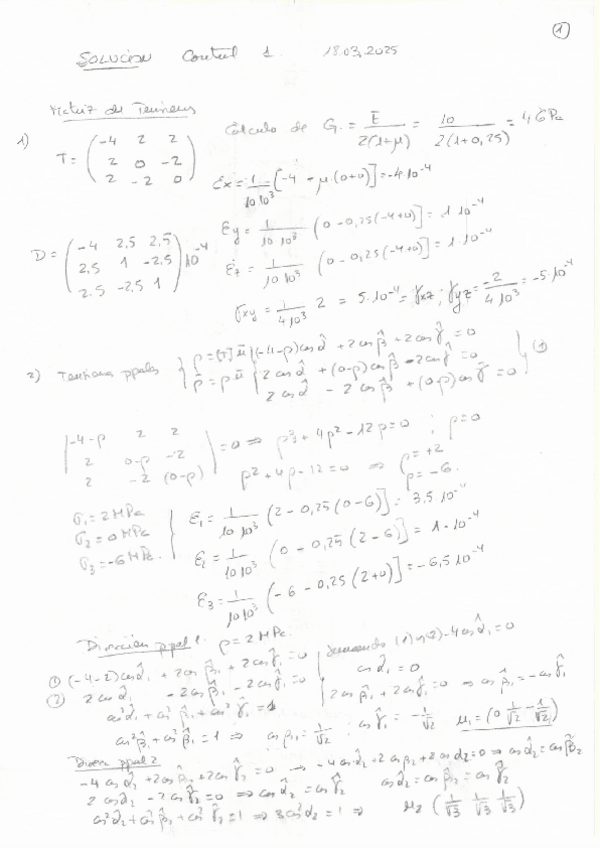 1
SOLUCION Control 1. 18.03.2025
Matriz de Tensiones
1) T = ( -4 2 2
2 0 -2
2 -2 0 )
Cálculo de G = E / 2(1+μ) = 10 / 2(1+0,25) = 4 GPa
Ex = 1/10 10³ [-4 - μ (0+0)] = -4 10⁻⁴
Ey = 1/10 10³ (0 - 0,25(-4+0)] = 1 10⁻⁴
Ez = 1/10 10³ (0 - 0,25(-4+0)] = 1 · 10⁻⁴
D = ( -4 2,5 2,5
2,5 1 -2,5
2.5 -2,5 1 ) 10⁻⁴
γxy = 1/4 10³ 2 = 5·10⁻⁴ = γxz ; γyz = -2/4 10³ = -5 10⁻⁴
2) Tensiones ppales { ρ̄ = [T] ū
ρ̄ = ρ ū
(-4-ρ) cos α̂ + 2 cos β̂ + 2 cos γ̂ = 0
2 cos α̂ + (0-ρ) cos β̂ - 2 cos γ̂ = 0
2 cos α̂ - 2 cos β̂ + (0-ρ) cos γ̂ = 0 } (1)
| -4-ρ 2 2
2 0-ρ -2
2 -2 (0-ρ) | = 0 ⇒ ρ³ + 4ρ² - 12ρ = 0 ; ρ = 0
ρ² + 4ρ - 12 = 0 ⇒ ρ = +2
ρ = -6.
σ1 = 2 MPa
σ2 = 0 MPa
σ3 = -6 MPa.
E1 = 1/10 10³ (2 - 0,25 (0-6)] = 3.5 10⁻⁴
E2 = 1/10 10³ (0 - 0,25 (2-6)] = 1 · 10⁻⁴
E3 = 1/10 10³ (-6 - 0,25 (2+0)] = -6,5 10⁻⁴
Dirección ppal 1. ρ = 2 MPa.
① (-4-2) cos α̂1 + 2 cos β̂1 + 2 cos γ̂1 = 0
② 2 cos α̂1 - 2 cos β̂1 - 2 cos γ̂1 = 0
cos² α̂1 + cos² β̂1 + cos² γ̂1 = 1
sumando (1) y (2) -4 cos α̂1 = 0
cos α̂1 = 0
2 cos β̂1 + 2 cos γ̂1 = 0 ⇒ cos β̂1 = - cos γ̂1
cos² β̂1 + cos² γ̂1 = 1 ⇒ cos β1 = 1/√2 ; cos γ̂1 = -1/√2 μ1 = (0 1/√2 -1/√2)
Direcc ppal 2
-4 cos α̂2 + 2 cos β̂2 + 2 cos γ̂2 = 0 → -4 cos α̂2 + 2 cos β2 + 2 cos α2 = 0 ⇒ cos α̂2 = cos β̂2
2 cos α̂2 - 2 cos γ̂2 = 0 ⇒ cos α̂2 = cos γ̂2 cos α̂2 = cos β̂2 = cos γ̂2
cos² α̂2 + cos² β̂2 + cos² γ̂2 = 1 ⇒ 3 cos² α̂2 = 1 ⇒ μ2 (1/√3 1/√3 1/√3)